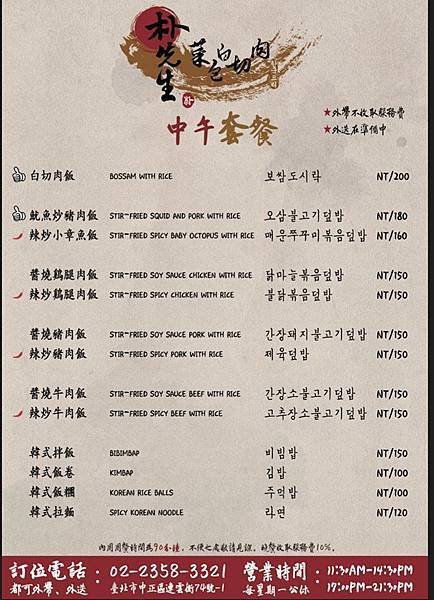 朴先生
菜包白切肉
中午套餐
★外帶不收取服務費
★外送在準備中
白切肉飯 BOSSAM WITH RICE 보쌈도시락 NT/200
魷魚炒豬肉飯 STIR-FRIED SQUID AND PORK WITH RICE 오삼불고기덮밥 NT/180
辣炒小章魚飯 STIR-FRIED SPICY BABY OCTOPUS WITH RICE 매운쭈꾸미볶음덮밥 NT/160
醬燒鷄腿肉飯 STIR-FRIED SOY SAUCE CHICKEN WITH RICE 닭마늘볶음덮밥 NT/150
辣炒鷄腿肉飯 STIR-FRIED SPICY CHICKEN WITH RICE 불닭볶음덮밥 NT/150
醬燒豬肉飯 STIR-FRIED SOY SAUCE PORK WITH RICE 간장돼지불고기덮밥 NT/150
辣炒豬肉飯 STIR-FRIED SPICY PORK WITH RICE 제육덮밥 NT/150
醬燒牛肉飯 STIR-FRIED SOY SAUCE BEEF WITH RICE 간장소불고기덮밥 NT/150
辣炒牛肉飯 STIR-FRIED SPICY BEEF WITH RICE 고추장소불고기덮밥 NT/150
韓式拌飯 BIBIMBAP 비빔밥 NT/150
韓式飯卷 KIMBAP 김밥 NT/100
韓式飯糰 KOREAN RICE BALLS 주먹밥 NT/100
韓式拉麵 SPICY KOREAN NOODLE 라면 NT/120
內用用餐時間為90分鐘，不便之處敬請見諒。用餐收取服務費10%。
訂位電話：02-2358-3321 營業時間：11:30AM-14:30PM
都可外帶、外送 臺北市中正區連雲街74號-1 每星期一公休 17:00PM-21:30PM